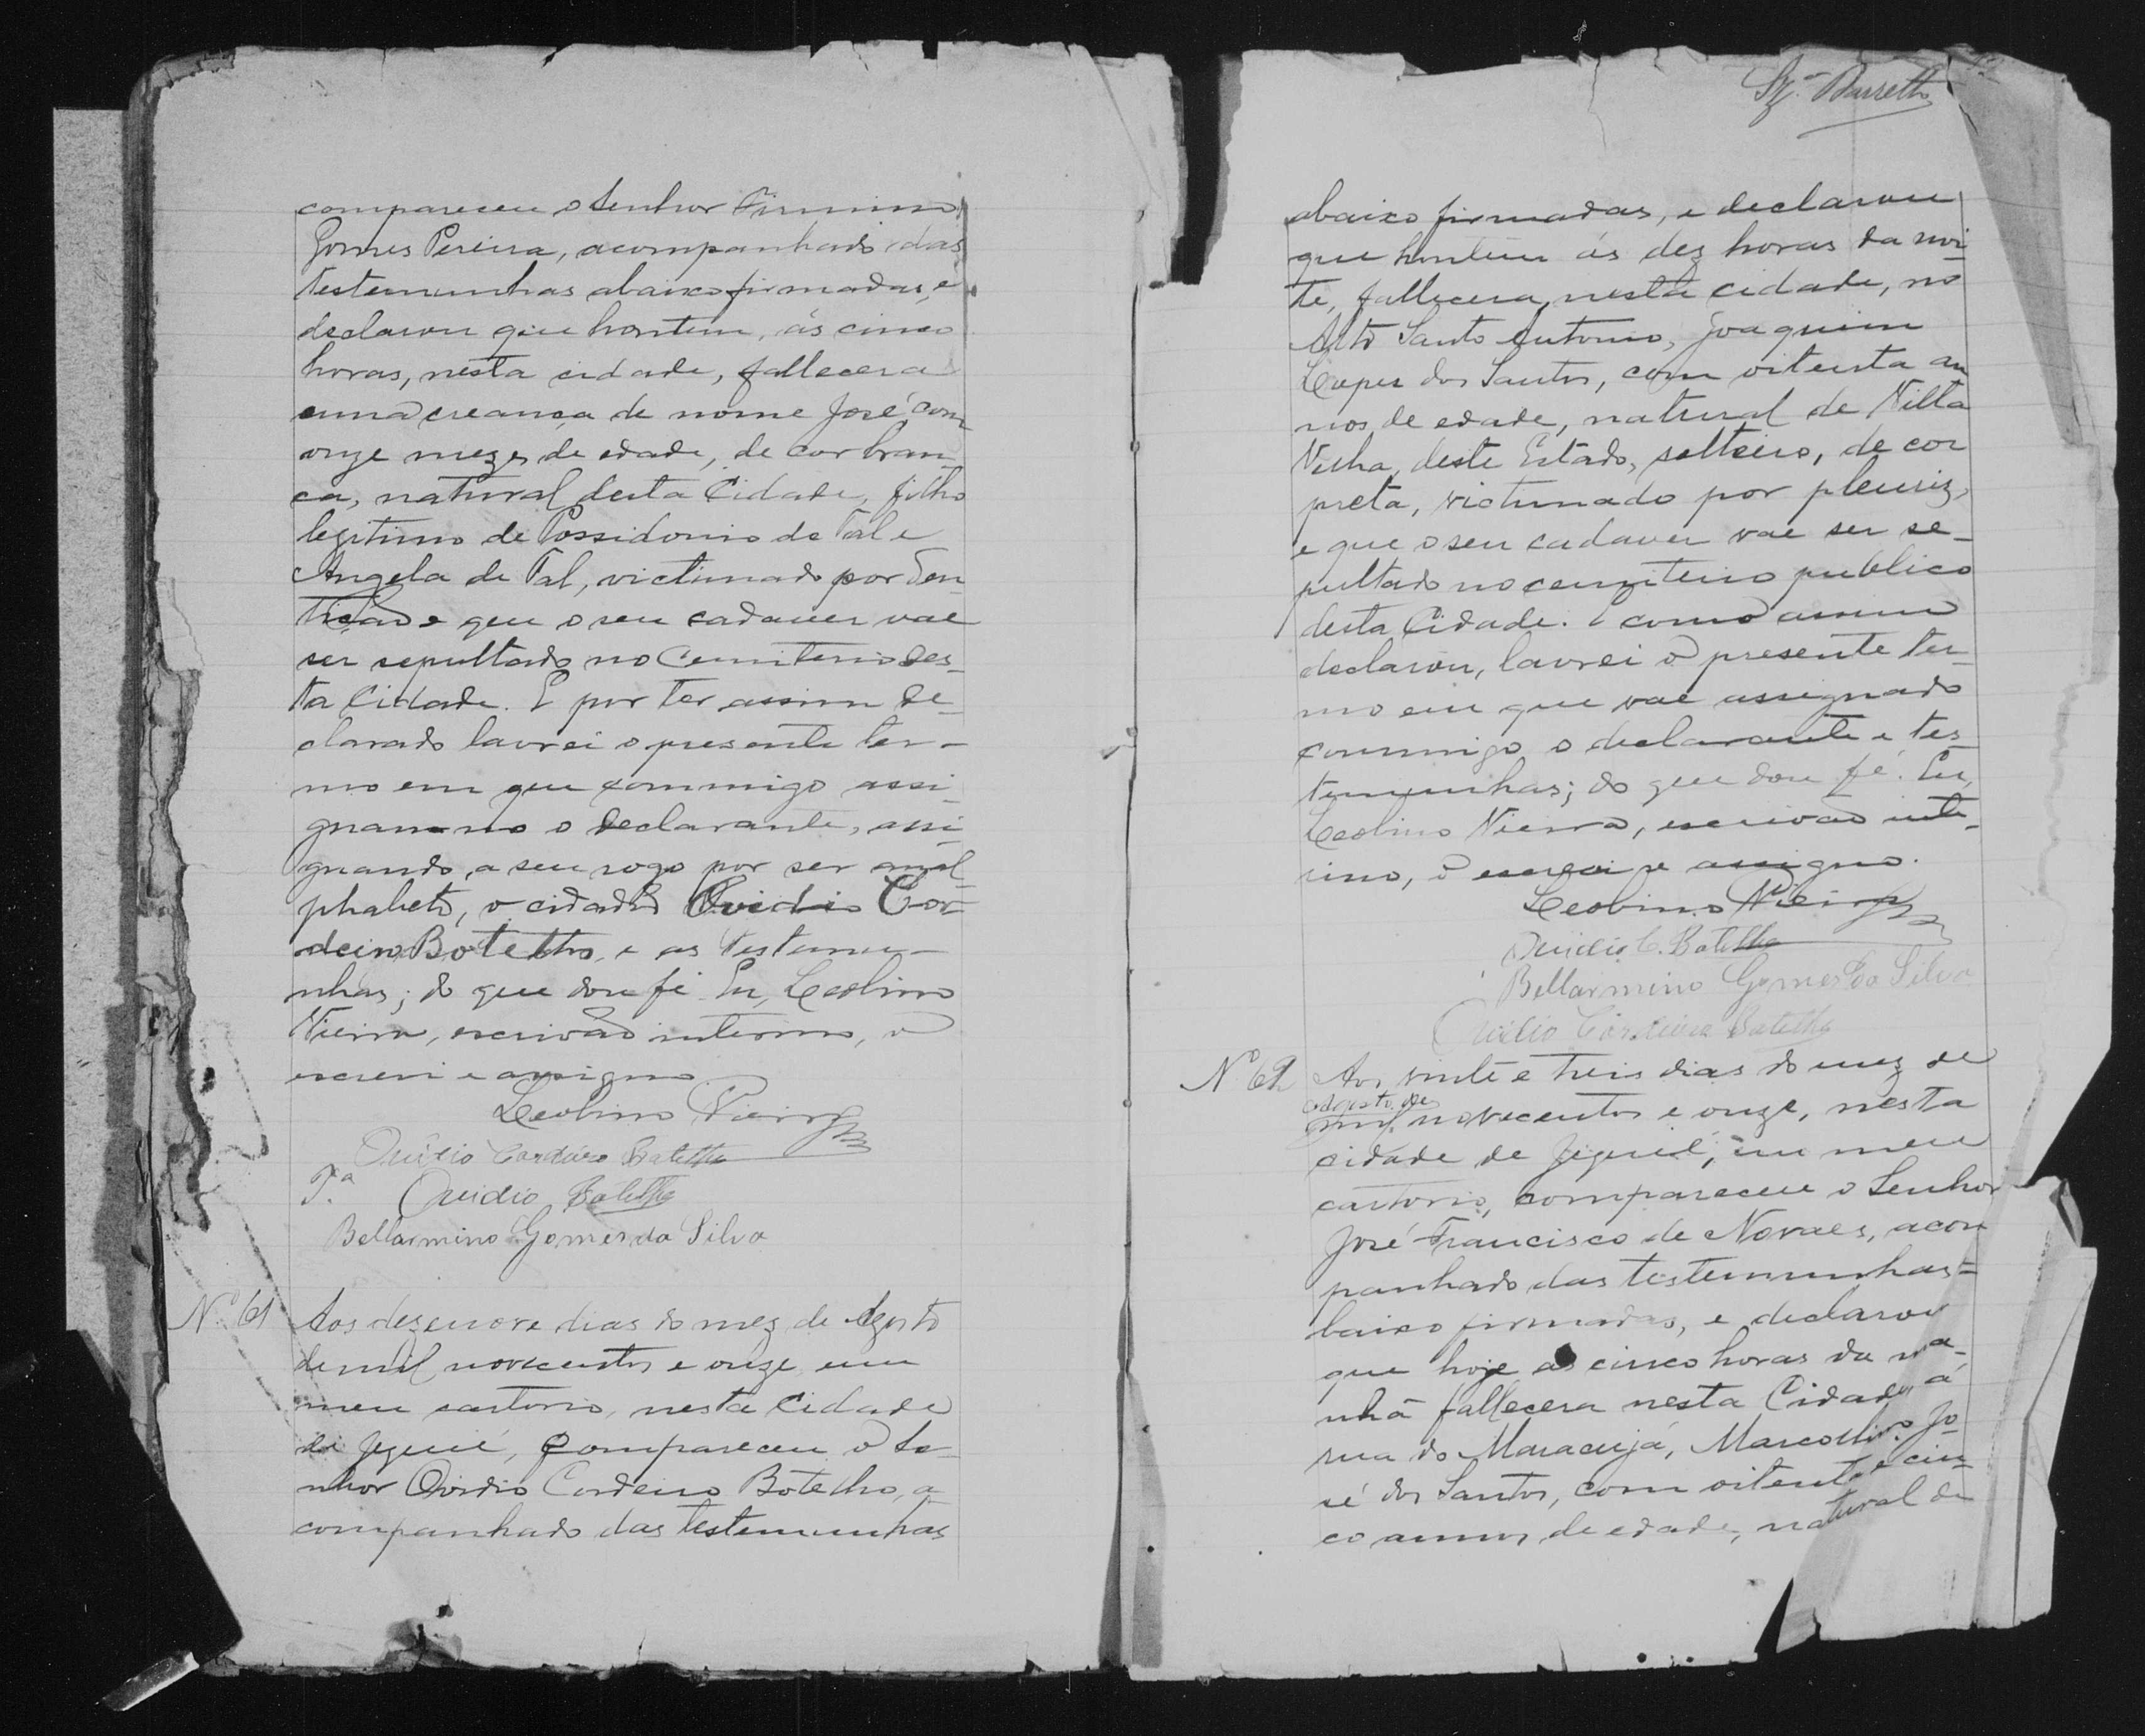 compareceu o Senhor Firmino
Gomes Pereira, acompanhado das
testemunhas abaixo firmadas, e
declarou que hontem, ás cinco
horas, nesta cidade, fallecera
uma creança de nome José, com
onze mezes de edade, de cor bran-
ca, natural desta Cidade, filho
legitimo de Possidonio de Tal e
Angela de Tal, victimado por Den
tição e que o seu cadaver vae
ser sepultado no Cemiterio des-
ta Cidade. E por ter assim de-
clarado lavrei o presente ter-
mo em que commigo assi-
gnam no o declarante, assi-
gnando, a seu rogo por ser anal-
phabeto, o cidadão Ovidio Cor-
deiro Botelho, e as testemu-
nhas; do que dou fé. Eu, Leolino
Vieira, escrivão interino, o
escrevi e assigno
Leolino Vieira
Ovidio Cordeiro Botelho
T.ª Ovidio Botelho
Bellarmino Gomes da Silva
Nº 61 Aos dezenove dias do mez de Agosto
de mil novecentos e onze, em
meu cartorio, nesta Cidade
de Jequié, compareceu o Se-
nhor Ovidio Cordeiro Botelho, a-
companhado das testemunhas
Barretto
abaixo firmadas, e declarou
que hontem ás dez horas da noi-
te, fallecera, nesta cidade, no
Alto Santo Antonio, Joaquim
Lopes dos Santos, com oitenta an
nos de edade, natural de Villa
Velha, deste Estado, solteiro, de cor
preta, victimado por pleuriz,
e que o seu cadaver vae ser se-
pultado no cemiterio publico
desta Cidade. E como assim
declarou, lavrei o presente ter-
mo em que vae assignado
commigo o declarante e tes-
temunhas; do que dou fé. Eu,
Leolino Vieira, escrivão inte-
rino, o escrevi e assigno.
Leolino Vieira
Ovidio C. Botelho
Bellarmino Gomes da Silva
Ovidio Cordeiro Botelho
Nº 62 Aos vinte e treis dias do mez de
Agosto de
mil novecentos e onze, nesta
cidade de Jequié, em meu
cartorio, compareceu o Senhor
José Francisco de Novaes, acom
panhado das testemunhas =
baixo firmadas, e declarou
que hoje as cinco horas da ma-
nhã fallecera nesta Cidade, á
rua do Maracujá, Marcolino Jo-
sé dos Santos, com oitenta e cin-
co annos de edade, natural de